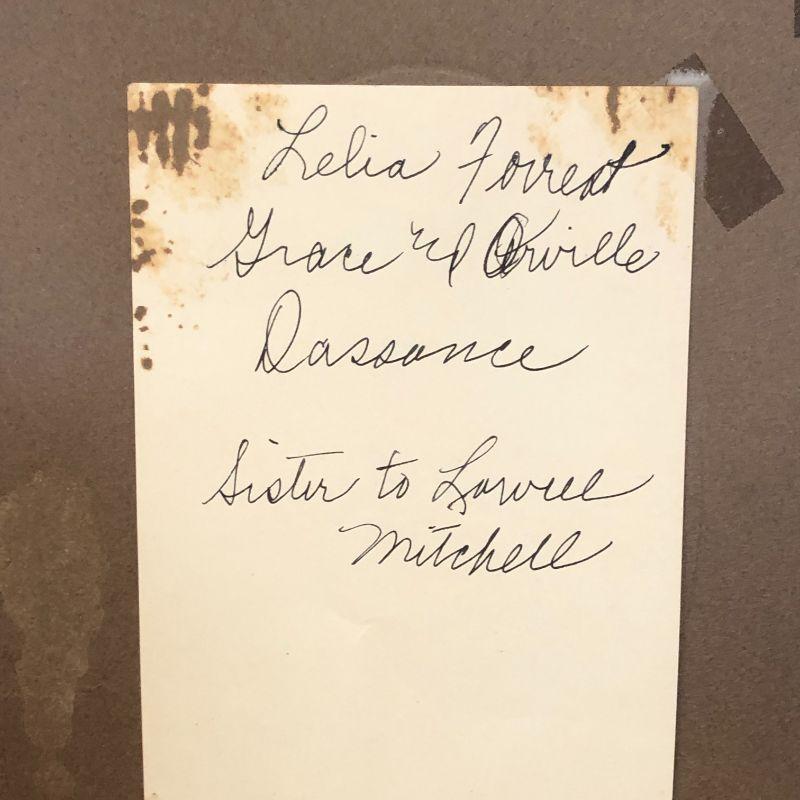 Lelia Forrest
Grace nd Orville
Dassance
Sister to Lowell
Mitchell